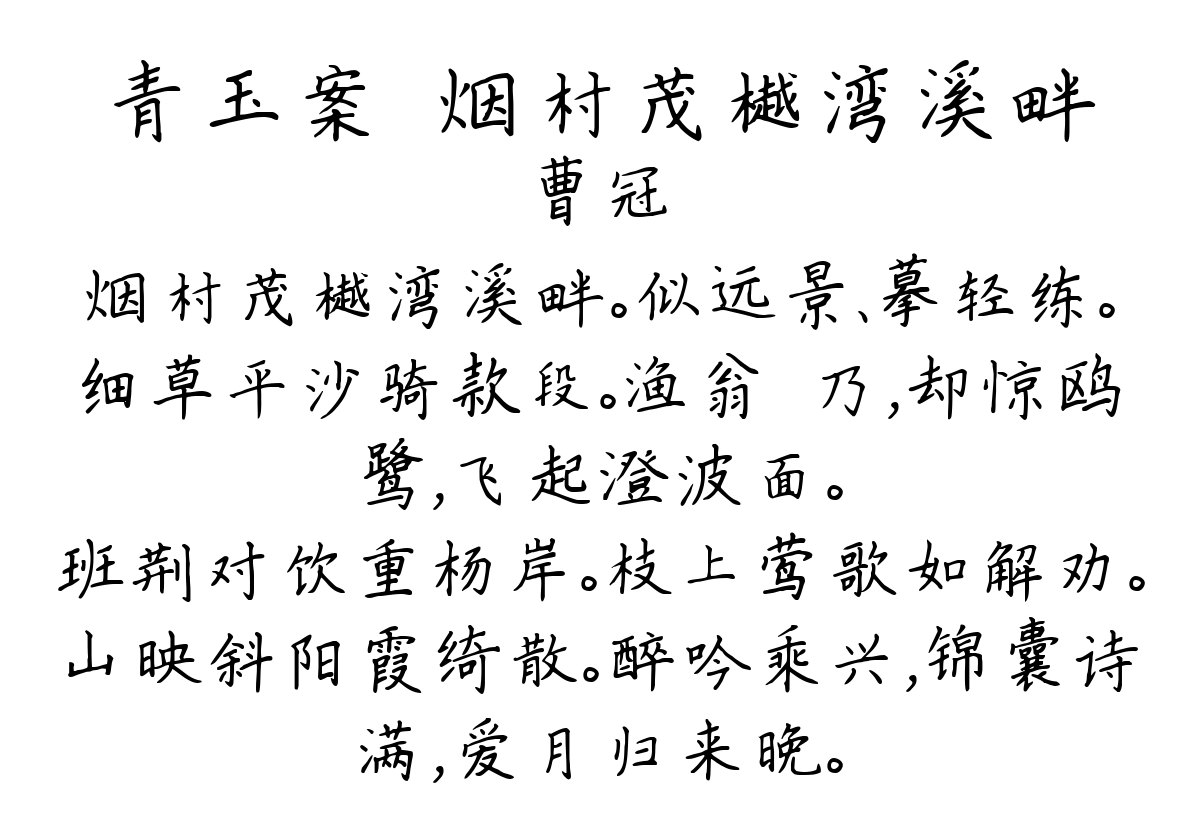 青玉案 烟村茂樾湾溪畔
曹冠
烟村茂樾湾溪畔。似远景、摹轻练。
细草平沙骑款段。渔翁 乃,却惊鸥
鹭,飞起澄波面。
班荆对饮重杨岸。枝上莺歌如解劝。
山映斜阳霞绮散。醉吟乘兴,锦囊诗
满,爱月归来晚。